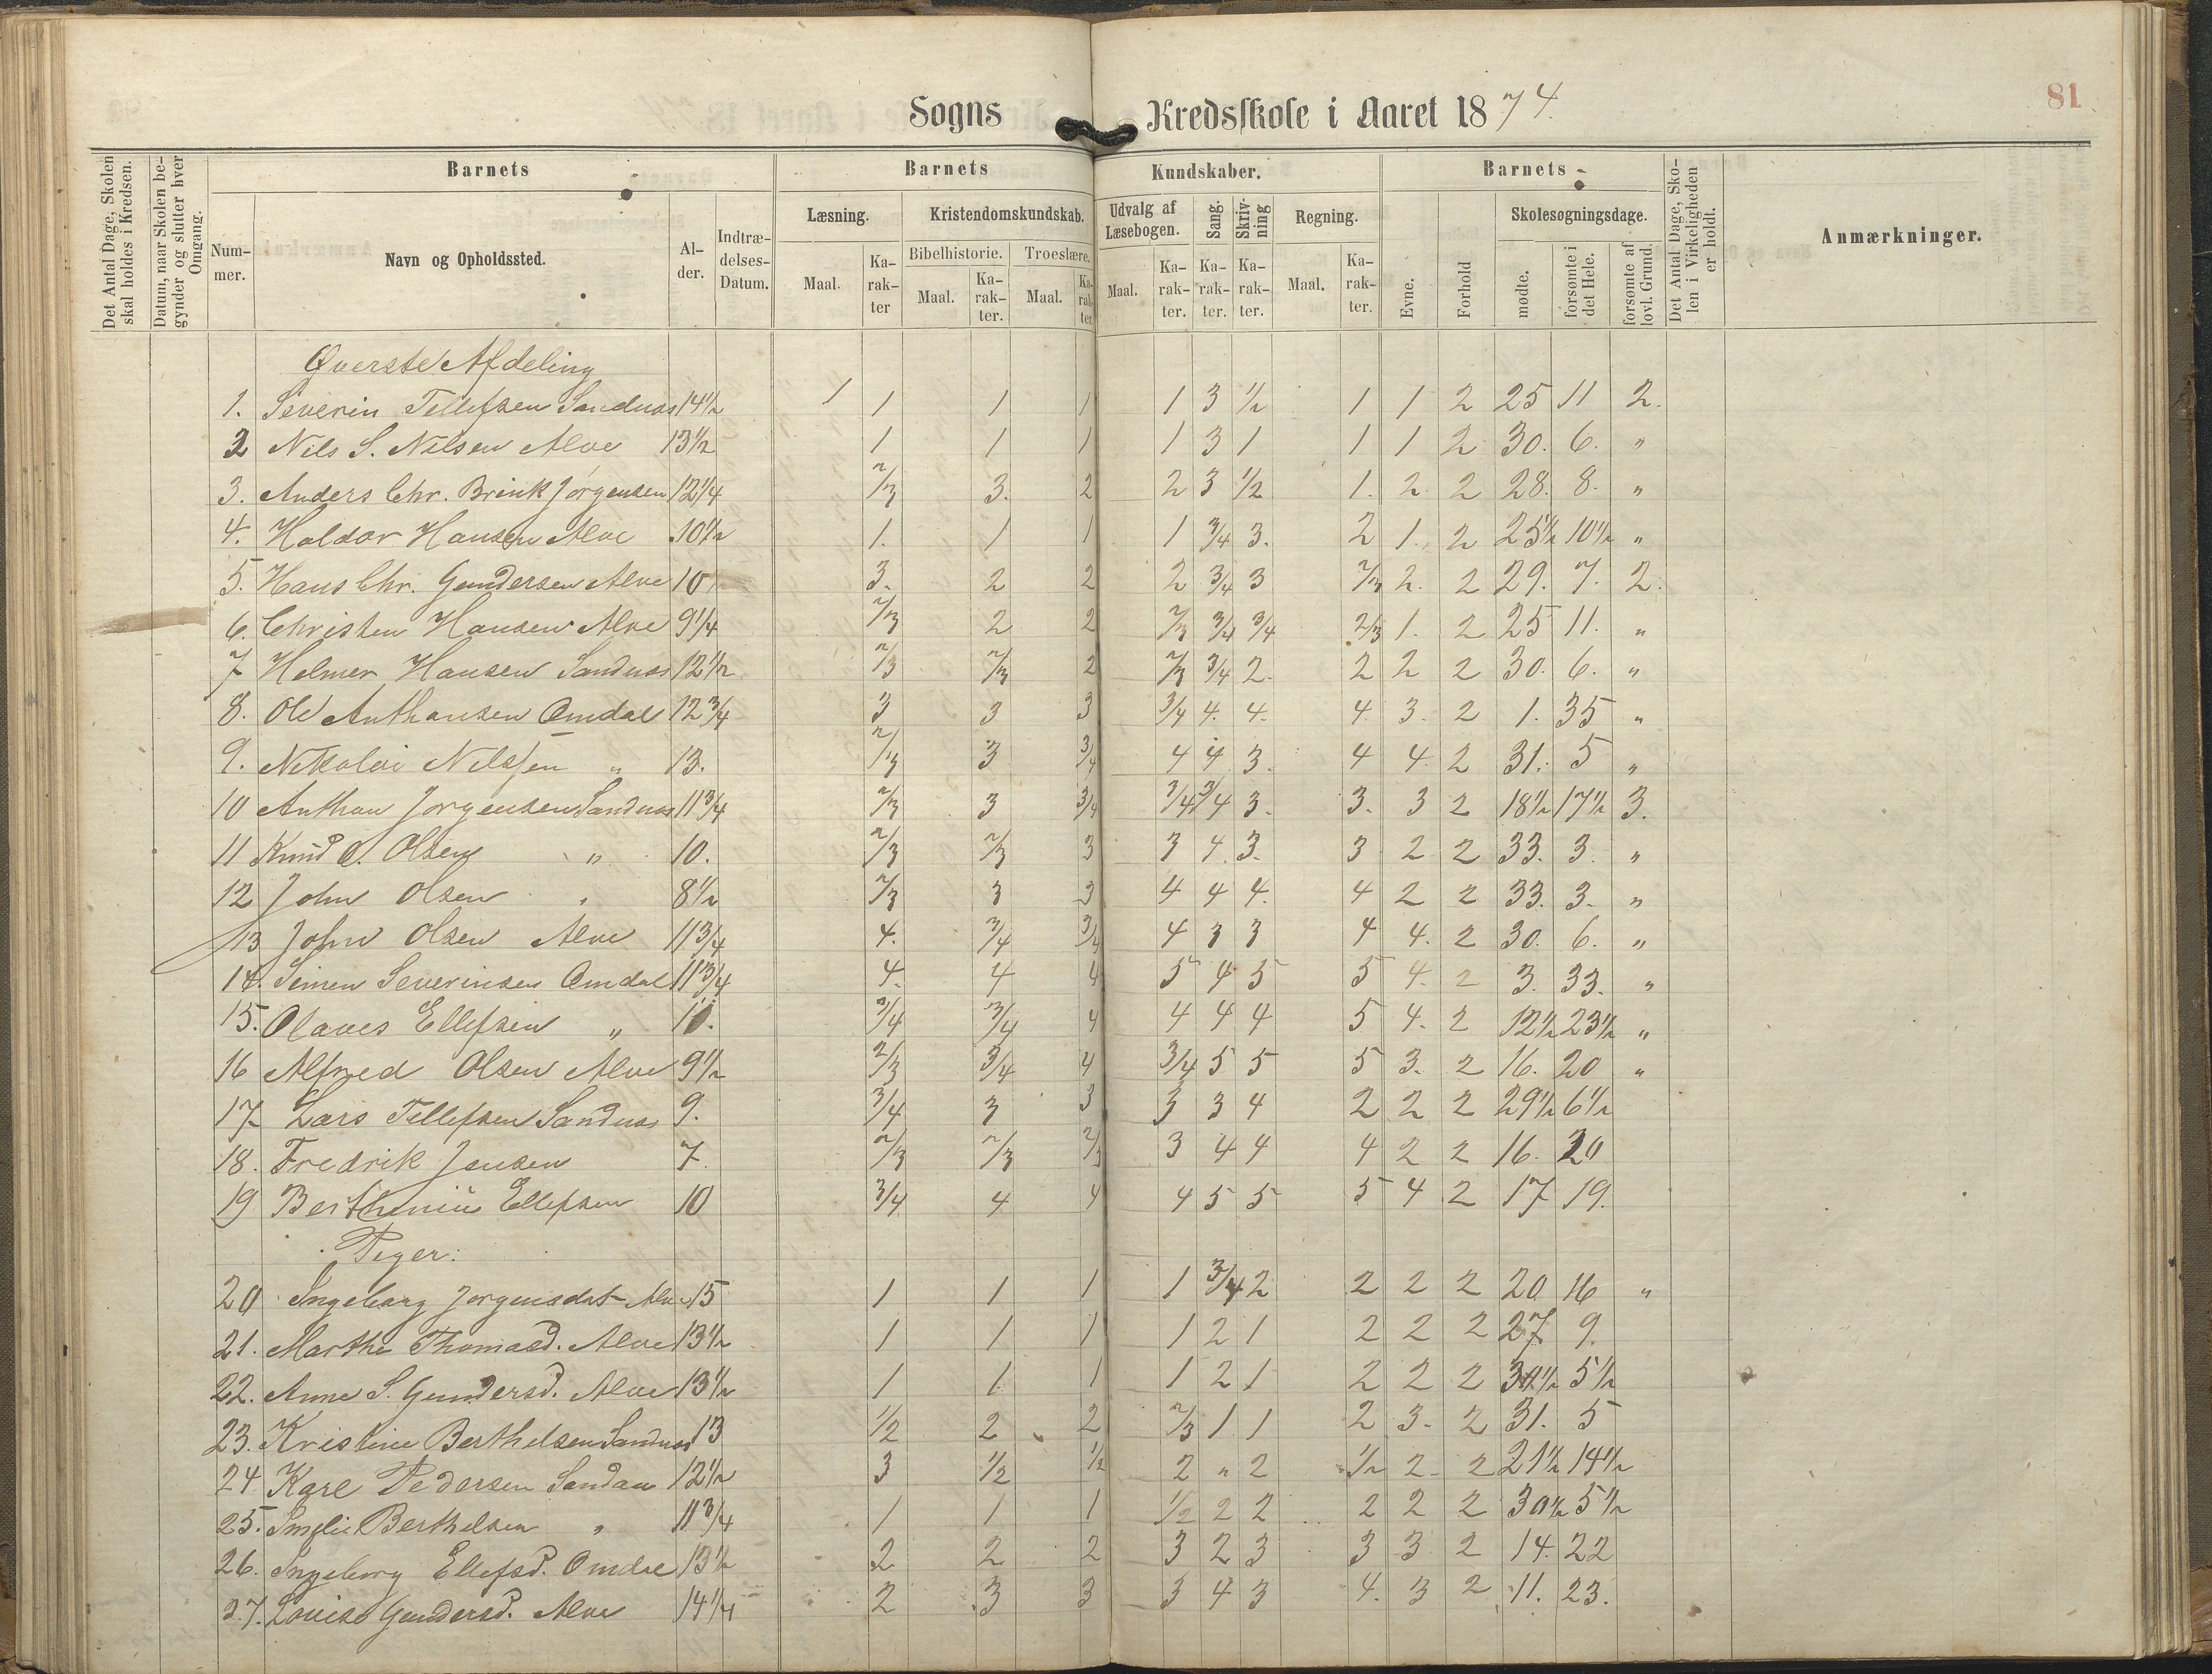 81
Sogns Kredsskole i Aaret 1874.
Det Antal Dage, Skolen skal holdes i Kredsen.
Datum, naar Skolen begynder og slutter hver Omgang.
Barnets
Barnets
Kundskaber.
Barnets
Det Antal Dage, Skolen i Virkeligheden er holdt.
Anmærkninger.
Nummer.
Navn og Opholdssted.
Alder.
Indtrædelses-Datum.
Læsning.
Kristendomskundskab.
Udvalg af Læsebogen.
Sang.
Skrivning
Regning.
Evne.
Forhold
Skolesøgningsdage.
Bibelhistorie.
Troeslære.
Maal.
Karakter
Maal.
Karakter.
Maal.
Karakter.
Maal.
Karakter.
Karakter.
Karakter.
Maal.
Karakter.
mødte.
forsømte i det Hele.
forsømte af lovl. Grund.
Øverste Afdeling
1. Severin Tellefsen Sandnes 14 1/2 1 1 1 1 1 3 1/2 1 1 2 25 11 2.
2 Nils S. Nilsen Alve 13 1/2 1 1 1 1 3 1 1 1 2 30. 6. "
3. Anders Chr. Brink Jørgensen 12 1/4 2/3 3. 2 2 3 1/2 1. 2. 2 28. 8. "
4. Haldor Hansen Alve 10 1/2 1. 1 1 1 3/4 3. 2 1. 2 25 1/2 10 1/2 "
5. Hans Chr. Gundersen Alve 10 3. 2 2 2 3/4 3 2/3 2. 2 29. 7. 2.
6. Christen Hansen Alve 9 1/4 2/3 2 2 2/3 3/4 3/4 2/3 1. 2 25 11. "
7 Helmer Hansen Sandnes 12 1/2 2/3 2/3 2 2/3 3/4 2. 2 2 2 30. 6. "
8. Ole Anthonsen Omdal 12 3/4 3 3 3 3/4 4. 4. 4. 3. 2 1. 35 "
9. Nikolai Nilssen " 13. 2/3 3 3/4 4 4 3. 4 4. 2 31. 5 "
10 Anthon Jørgensen Sandnes 11 3/4 2/3 3 3/4 3/4 3/4 3. 3. 3 2 18 1/2 17 1/2 3.
11 Knud O. Olsen " 10. 2/3 2/3 3 3 4. 3. 3 2 2 33. 3. "
12 John Olsen " 8 1/2 2/3 3 3 4 4 4. 4 2 2 33. 3. "
13 John Olsen Alve 11 3/4 4. 3/4 3/4 4 3 3 4 4. 2 30. 6. "
14. Simen Severinsen Omdal 11 3/4 4. 4 4 5 4 5 5 4. 2 3. 33. "
15. Olaves Ellefsen " 10. 3/4 3/4 4 4 4 4 5 4. 2 12 1/2 23 1/2 "
16 Alfred Olsen Alve 9 1/2 2/3 3/4 4 3/4 5 5 5 3. 2 16. 20 "
17 Lars Tellefsen Sandnes 9. 3/4 3 3 3 3 4 2 2 2 29 1/2 6 1/2
18. Fredrik Jensen 7. 2/3 2/3 2/3 3 4 4 4 2 2 16. 20
19 Berthinius Ellefsen 10 3/4 4 4 4 5 5 5 4 2 17 19.
Piger:
20 Ingeborg Jørgensdat Alve 15 1 1 1 1 3/4 2 2 2 2 20 16 "
21. Marthe Thomasd. Alve 13 1/2 1 1 1 1 2 1 2 2 2 27 9.
22. Anne S. Gundersd. Alve 13 1/2 1 1 1 1 2 1 2 2 2 30 1/2 5 1/2
23. Kristine Berthelsen Sandnes 13 1/2 2 2 2/3 1 1 2 3. 2 31. 5
24 Kare Pedersen Sandnes 12 1/2 3 1/2 1/2 2 " 2 1/2 2. 2 21 1/2 14 1/2
25. Berthelsen " 11 3/4 1 1 1 1/2 2 2 2 2 2 30 1/2 5 1/2
26. Ingeborg Ellefsd. Omdal 13 1/2 2 2 2 3 2 3 3 3 2 14. 22
27. Louise Gundersd. Alve 14 1/4 2 3 3 3 4 3 4. 3 2 11. 23.